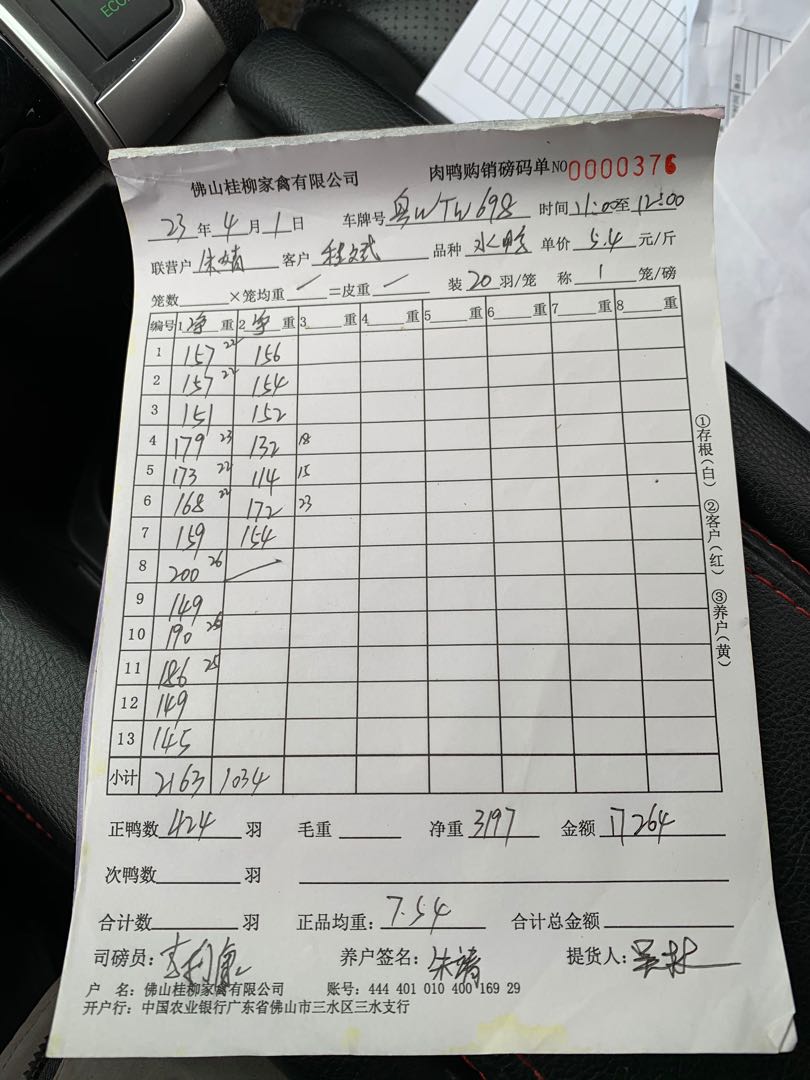 ECO
佛山桂柳家禽有限公司 肉鸭购销磅码单 NO 0000376
23 年 4 月 1 日 车牌号 粤WTW698 时间 11:00 至 12:00
联营户 朱靖 客户 程文武 品种 水鸭 单价 5.4 元/斤
笼数 ×笼均重 / =皮重 / 装 20 羽/笼 称 1 笼/磅
编号 1 净 重 2 净 重 3 重 4 重 5 重 6 重 7 重 8 重
1 157 22 156
2 157 22 154
3 151 152
4 179 23 132 18
5 173 22 114 15
6 168 22 172 23
7 159 154
8 200 26 /
9 149
10 190 25
11 186 25
12 149
13 145
小计 2163 1034
正鸭数 424 羽 毛重 净重 3197 金额 17264
次鸭数 羽
合计数 羽 正品均重: 7.54 合计总金额
司磅员: 养户签名: 朱靖 提货人:
户 名: 佛山桂柳家禽有限公司 账号: 444 401 010 400 169 29
开户行: 中国农业银行广东省佛山市三水区三水支行
①存根(白) ②客户(红) ③养户(黄)